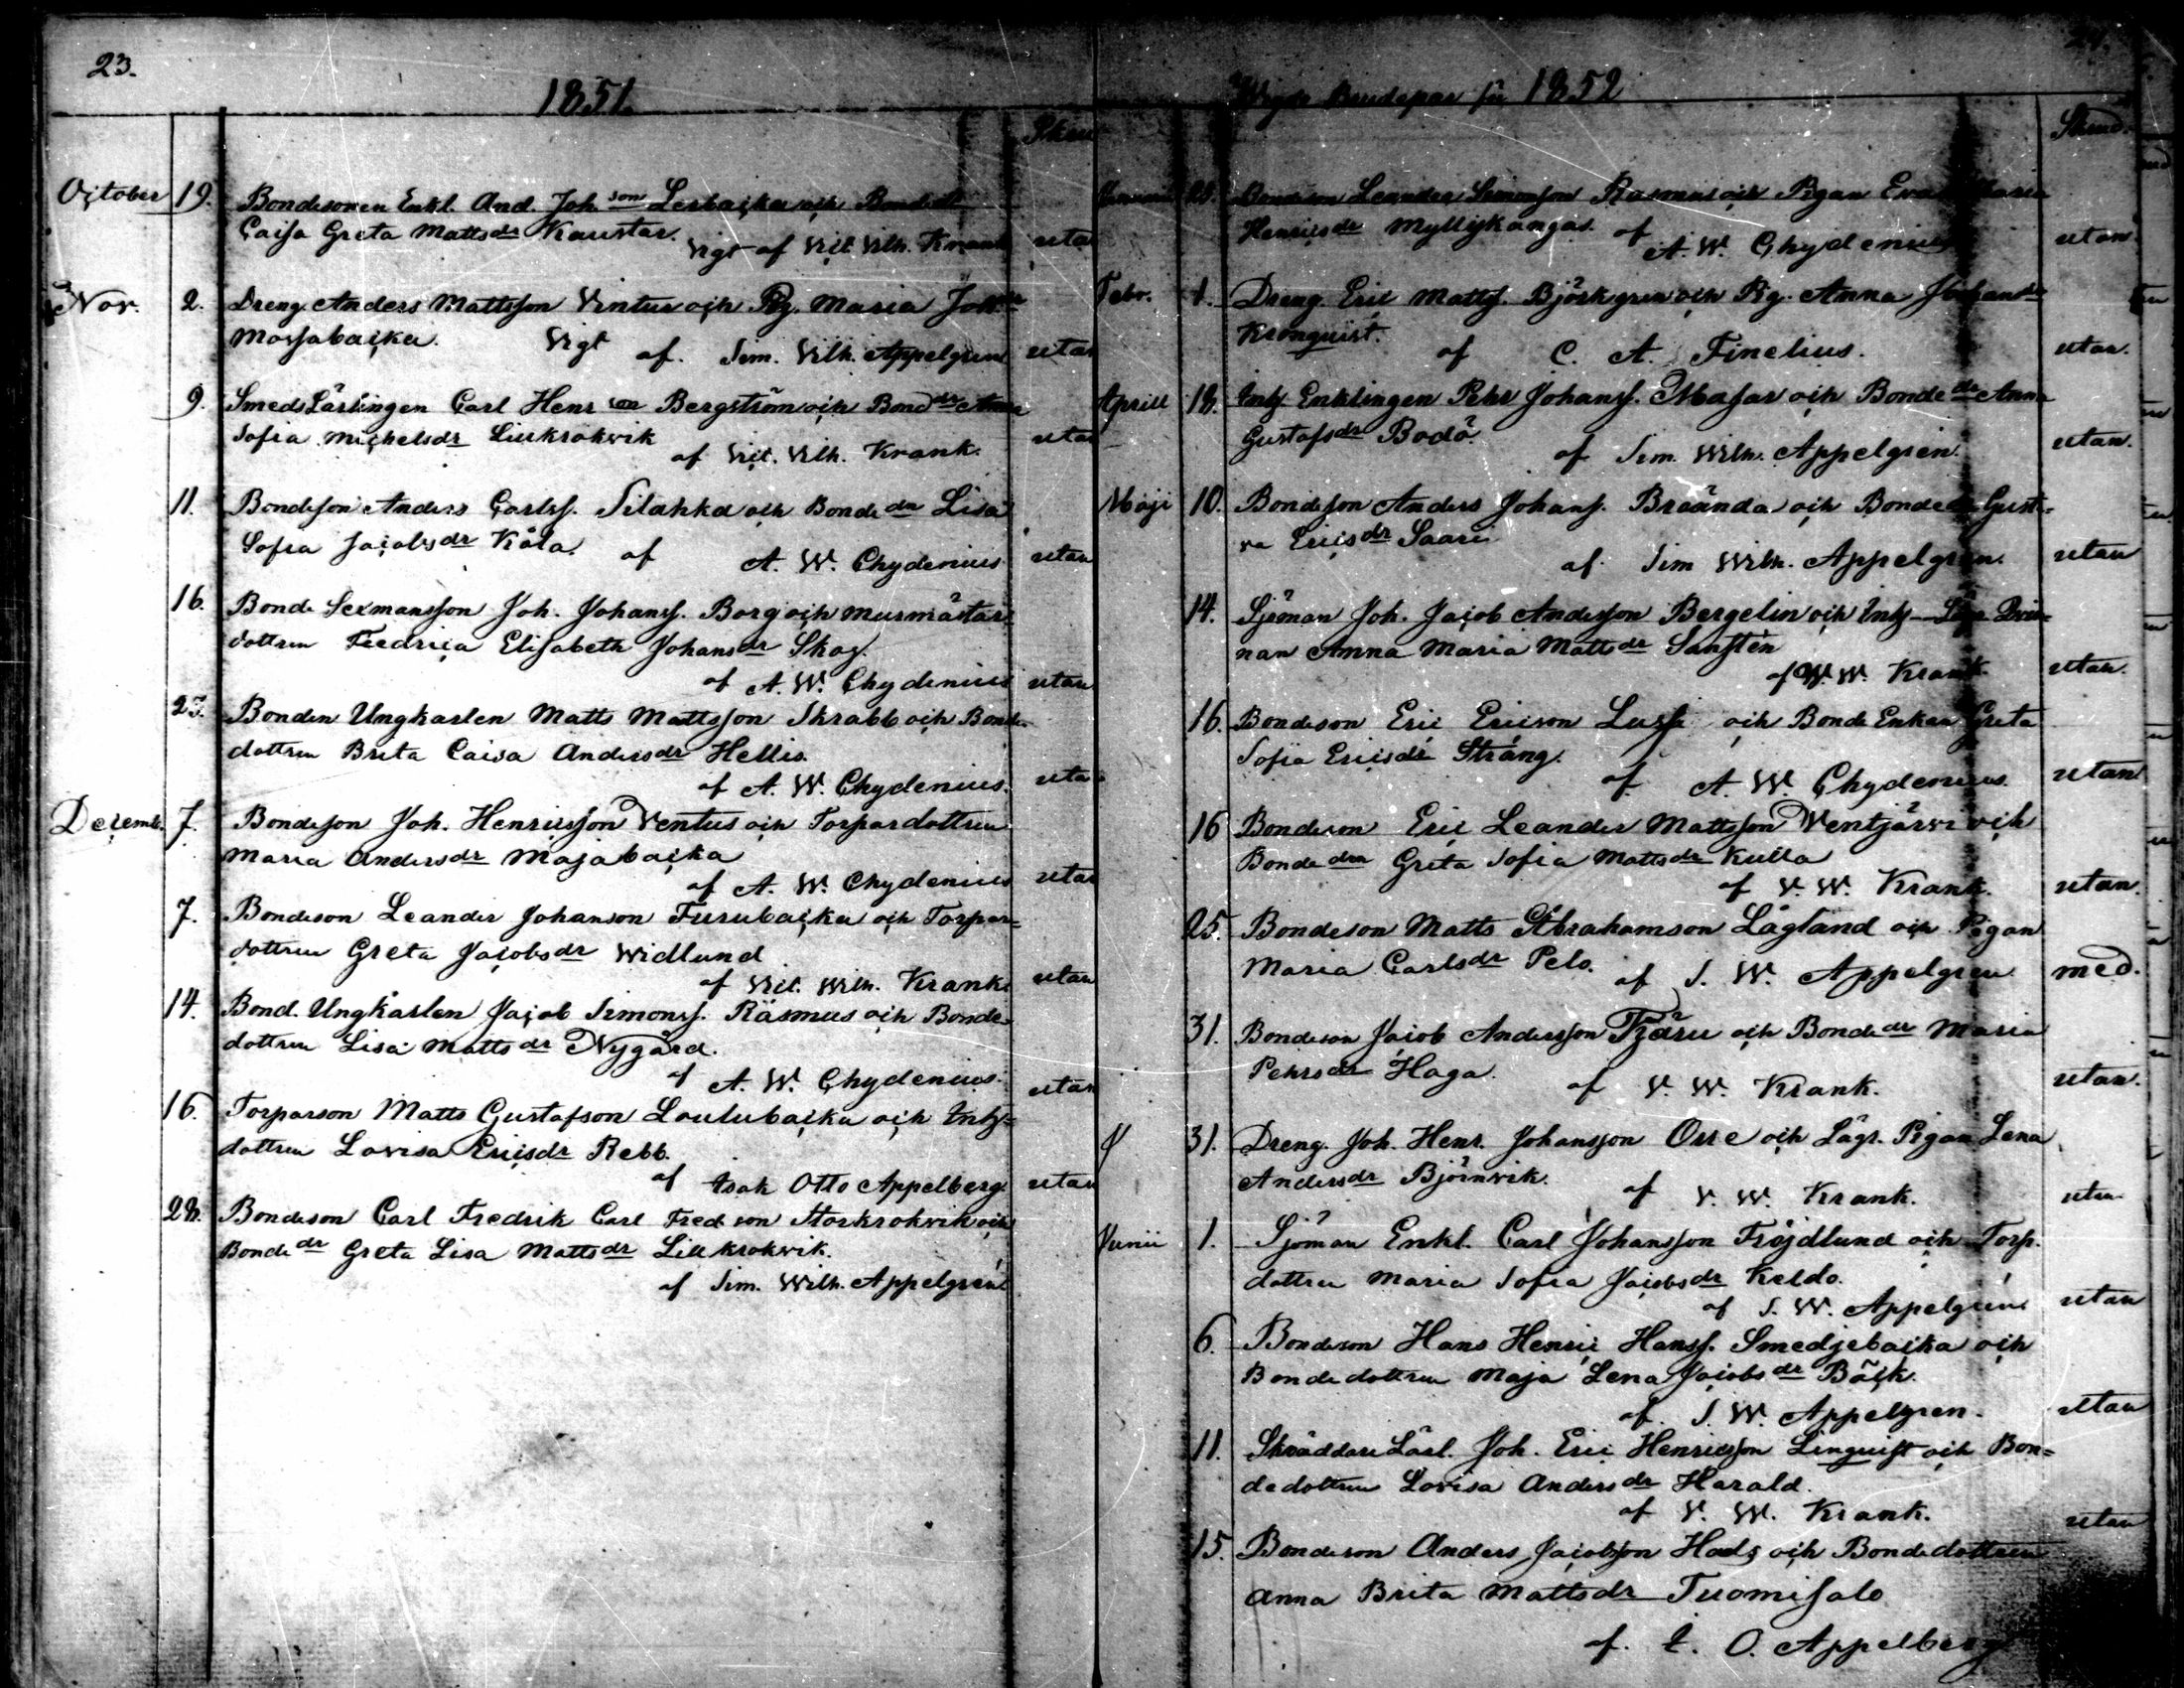 23.
1851.
October 19. Bondesonen Enkl. And. Joh son Lerbacka och Bondedtr
Caisa Greta Mattsdr Kaustar.
Vigt af Vict Vilh. Krank utan
Nov. 2. Dreng Anders Mattsson Vintur och Pig. Maria Joh dr
Mossabacka. Vigt af. Sim. Vilh. Appelgren utan
9. Smeds Lärlingen Carl Henr son Bergström och Bond dr Anna
Sofia Michelsdr Lillkrokvik
af Vict. Vilh. Krank. utan
11. Bondeson Anders Carlss. Silahka och Bonde dr Lisa
Sofia Jacobsdr Kåla. af A. W. Chydenius utan
16. Bonde Sexmansson Joh. Johanss. Borg och Murmästar
dottren Fredrica Elisabeth Johansdr Skog.
af A. W. Chydenius utan
23. Bonden Ungkarlen Matts Mattsson Skrabb och Bonde
dottren Brita Caisa Andersdr Hellis.
af A. W. Chydenius. utan
Decemb. 7. Bondeson Joh. Henricsson Ventus och Torpardottren
Maria Andersdr Majabacka
af A. W. Chydenius utan
7. Bondeson Leander Johanson Furubacka och Torpar=
dottren Greta Jacobsdr Widlund
af Vict. Wilh. Krank utan
14. Bond. Ungkarlen Jacob Simonss. Räsmus och Bonde=
dottren Lisa Mattsdr Nygård.
af A. W. Chydenius. utan
16. Torparson Matts Gustafson Loulubacka och Inhs=
dottren Lovisa Ericsdr Rebb.
af Isak Otto Appelberg. utan
28. Bondeson Carl Fredrik Carl Fred son Storkrokvik och
Bonde dr Greta Lisa Mattsdr Lillkrokvik.
af Sim. Wilh. Appelgren
24.
Wigde Brudepar för 1852
Januari 25. Bondeson Leander Simonson Rasmus och Pigan Eva Maria
Henricsdr Myllykangas. af A. W. Chydenius utan
Febr. 1. Dreng. Eric Matts. Björkgren och Pig. Anna Johansdr
Kronquist. af C. A. Finelius. utan.
Aprill 18. Inhs Enklingen Pehr Johanss. Masar och Bonde dr Anna
Gustafsdr Bodö.
af Sim. Wilh. Appelgren. utan.
Maji 10. Bondeson Anders Johans. Breända och Bonde dr Gusta=
va Ericsdr Saari
af Sim Wilh. Appelgren. utan
14. Sjöman Joh. Jacob Andersson Bergelin och Inhs Lägr Qvin=
nan Anna Maria Mattsdr Sanstén
af V. W. Krank. utan.
16. Bondeson Eric Ericson Lassi och Bonde Enkan Greta
Sofia Ericsdr Sträng.
af A. W. Chydenius. utan
16 Bondeson Eric Leander Mattsson Wentjärvi och
Bonde drn Greta Sofia Mattsdr Kulla
af V. W. Krank. utan.
25. Bondeson Matts Abrahamson Lågland och Pigan
Maria Carlsdr Pelo. af S. W. Appelgren med.
31. Bondeson Jacob Andersson Tjäru och Bonde dr Maria
Pehrsdr Haga. af V. W. Krank. utan.
31. Dreng. Joh. Henr. Johansson Orre och Lägr. Pigan Lena
Andersdr Björnvik. af V. W. Krank. utan
Junii 1. Sjöman Enkl. Carl Johansson Fröjdlund och Torp.
dottren Maria Sofia Jacobsdr Keldo.
af S. W. Appelgren utan
6. Bondeson Hans Henric Hanss. Smedjebacka och
Bondedottren Maja Lena Jacobsdr Bäck.
af. S. W. Appelgren. utan
11. Skräddare Lärl. Joh. Eric Henricsson Linquist och Bon=
dedottren Lovisa Andersdr Harald.
af V. W. Krank. utan
15. Bondeson Anders Jacobsson Hads och Bondedottren
Anna Brita Mattsdr Tuomisalo
af. I. O. Appelberg